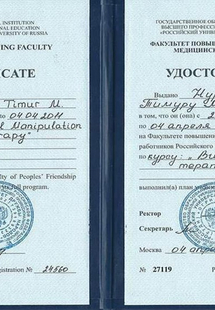 INSTITUTION
NAL EDUCATION
VERSITY OF RUSSIA"
ING FACULTY
ICATE
Timur M.
to 04.04.2011
l Manipulation
rapy"
ulty of Peoples' Friendship
full program.
Registration № 24560
ГОСУДАРСТВЕННОЕ ОБР
ВЫСШЕГО ПРОФЕССИО
"РОССИЙСКИЙ УНИВЕР
ФАКУЛЬТЕТ ПОВЫ
МЕДИЦИНСК
УДОСТО
Выдано Нур
Тимуру
в том, что он (она) с 2
по 04 апреля
на Факультете повышени
работников Российского
по курсу: „Ви
терап
выполнил(а) план
Ректор
Секретарь
Москва 04 апр
№ 27119 Рег